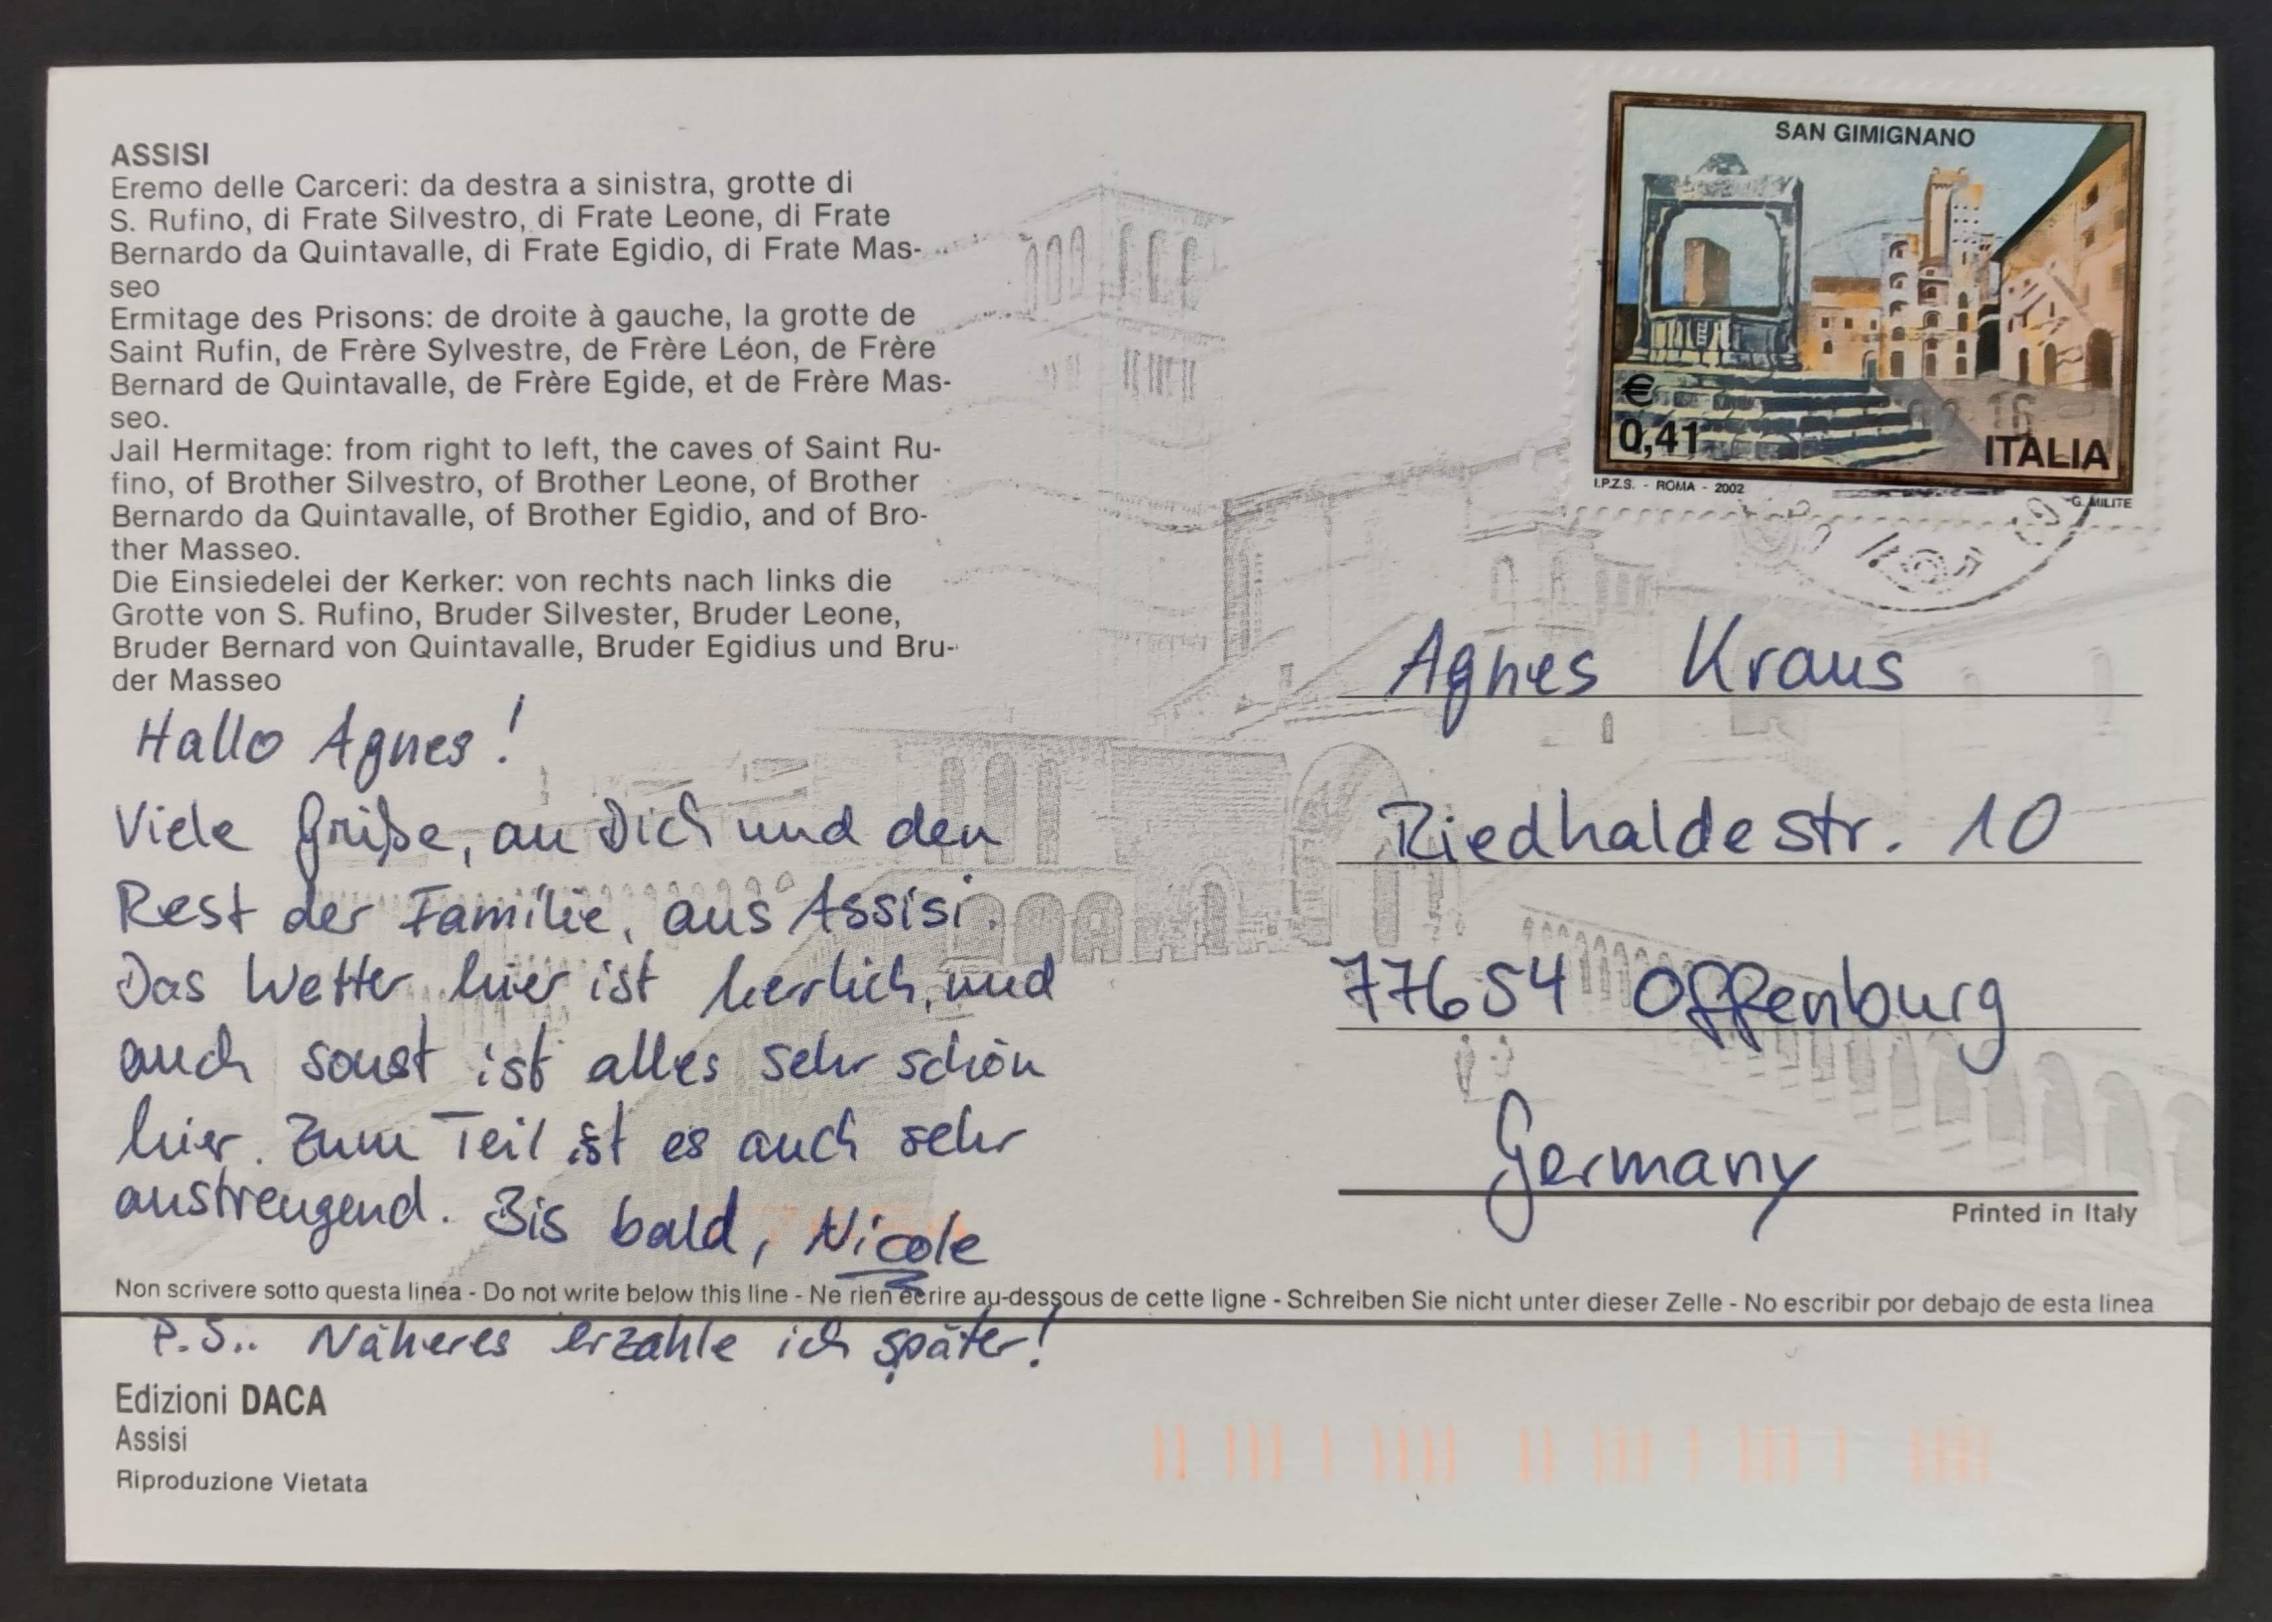 ASSISI
Eremo delle Carceri: da destra a sinistra, grotte di
S. Rufino, di Frate Silvestro, di Frate Leone, di Frate
Bernardo da Quintavalle, di Frate Egidio, di Frate Mas-
seo
Ermitage des Prisons: de droite à gauche, la grotte de
Saint Rufin, de Frère Sylvestre, de Frère Léon, de Frère
Bernard de Quintavalle, de Frère Egide, et de Frère Mas-
seo.
Jail Hermitage: from right to left, the caves of Saint Ru-
fino, of Brother Silvestro, of Brother Leone, of Brother
Bernardo da Quintavalle, of Brother Egidio, and of Bro-
ther Masseo.
Die Einsiedelei der Kerker: von rechts nach links die
Grotte von S. Rufino, Bruder Silvester, Bruder Leone,
Bruder Bernard von Quintavalle, Bruder Egidius und Bru-
der Masseo
Hallo Agnes!
Viele Grüße, an Dich und den
Rest der Familie, aus Assisi.
Das Wetter hier ist herlich, und
auch sonst ist alles sehr schön
hier. Zum Teil ist es auch sehr
anstrengend. Bis bald, Nicole
SAN GIMIGNANO
€
0,41
ITALIA
I.P.Z.S. - ROMA - 2002
G. MILITE
Agnes Kraus
Riedhaldestr. 10
77654 Offenburg
Germany
Printed in Italy
Non scrivere sotto questa linea - Do not write below this line - Ne rien écrire au-dessous de cette ligne - Schreiben Sie nicht unter dieser Zelle - No escribir por debajo de esta linea
P.S.: Näheres erzähle ich später!
Edizioni DACA
Assisi
Riproduzione Vietata